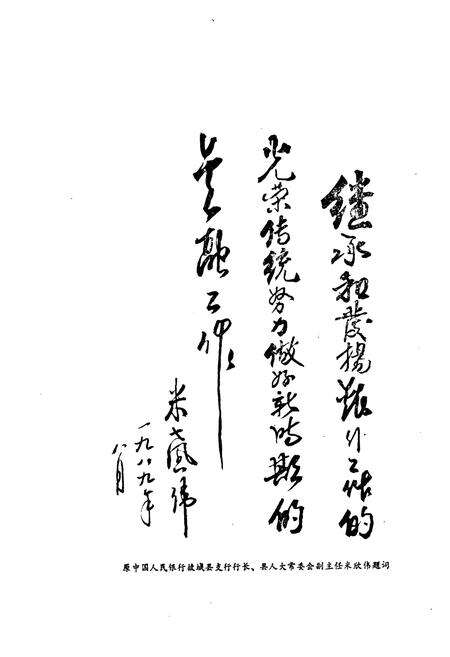 继承和发扬银行工作的
光荣传统努力做好新时期的
金融工作
米
一九八九年
八月
原中国人民银行故城县支行行长、县人大常委会副主任米欣伟题词